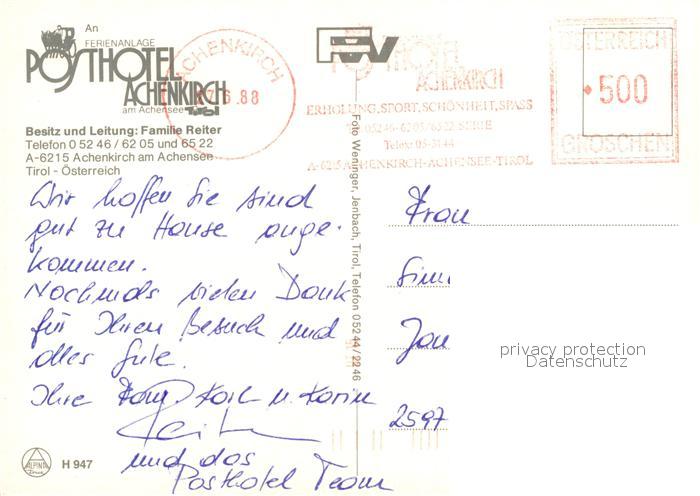 An
FERIENANLAGE
POSTHOTEL
ACHENKIRCH
am Achensee Tirol
Besitz und Leitung: Familie Reiter
Telefon 0 52 46 / 62 05 und 65 22
A-6215 Achenkirch am Achensee
Tirol - Österreich
ACHENKIRCH
6.88
POSTHOTEL
ACHENKIRCH
ERHOLUNG, SPORT, SCHÖNHEIT, SPASS
Tel. 05246-6205/6522 SERIE
Telex: 05-3144
A-6215 ACHENKIRCH-ACHENSEE-TIROL
ÖSTERREICH
500
GROSCHEN
Wir hoffen Sie sind
gut zu Hause ange-
kommen.
Nochmals vielen Dank
für Ihren Besuch und
alles Gute.
Ihre Fam. Karl u. Karin
Reiter
und das
Posthotel Team
Foto Weninger, Jenbach, Tirol, Telefon 0 52 44 / 22 46
Frau
2597
privacy protection
Datenschutz
ALPINA
H 947